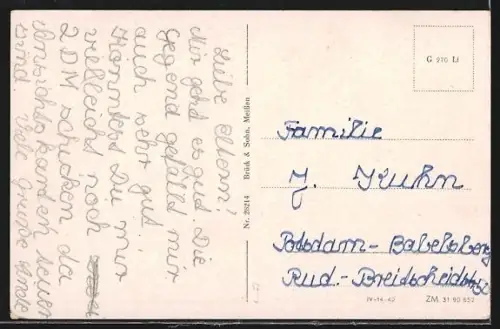 Liebe Eltern!
Mir geht es gut. Die
Gegend gefällt mir
auch sehr gut.
Könntest Du mir
vielleicht noch
2 DM schicken, da
Ansichtskarten teuer
sind. Viele Grüße
Nr. 28214 Brück & Sohn, Meißen
G 970 Li
Familie
J. Kuhn
Potsdam-Babelsberg
Rud.-Breitscheidstr.
IV-14-42 ZM. 31 90 852